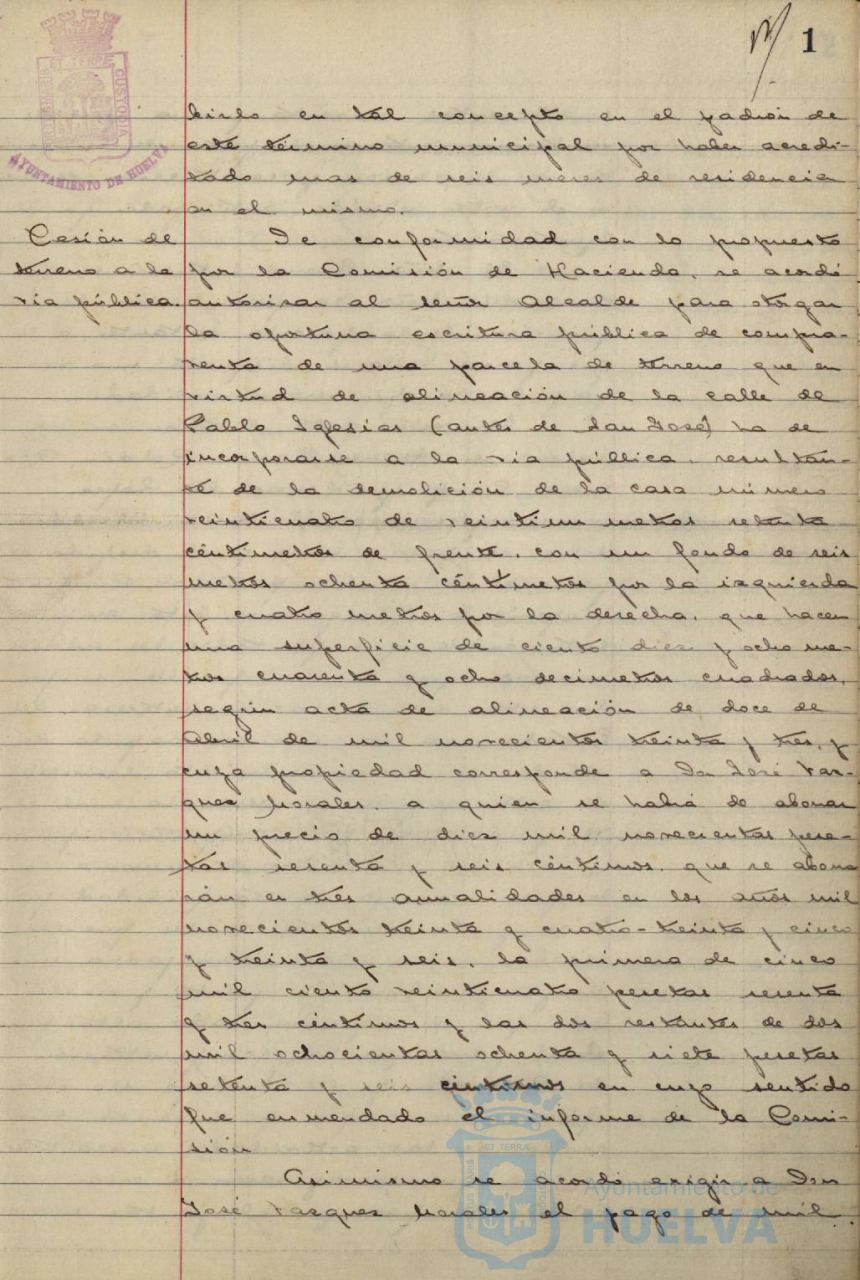 1
PORTUS MARIS ET TERRE CUSTODIA
AYUNTAMIENTO DE HUELVA
birlo en tal concepto en el padrón de
este término municipal por haber acredi-
tado mas de seis meses de residencia
en el mismo.
Cesión de
terreno a la
via pública.
De conformidad con lo propuesto
por la Comisión de Hacienda, se acordó
autorizar al señor Alcalde para otorgar
la oportuna escritura pública de compra-
venta de una parcela de terreno que en
virtud de alineación de la calle de
Pablo Iglesias (antes de San José) ha de
incorporarse a la via pública, resultan-
te de la demolición de la casa número
veinticuatro de veintiun metros setenta
céntimetros de frente, con un fondo de seis
metros ochenta céntimetros por la izquierda
y cuatro metros por la derecha, que hacen
una superficie de ciento diez y ocho me-
tros cuarenta y ocho decimetros cuadrados,
según acta de alineación de doce de
Abril de mil novecientos treinta y tres, y
cuya propiedad corresponde a Don José Vaz-
quez Morales, a quien se habrá de abonar
un precio de diez mil novecientas pese-
tas sesenta y seis céntimos, que se abona
rán en tres anualidades en los años mil
novecientos treinta y cuatro-treinta y cinco
y treinta y seis, la primera de cinco
mil ciento veinticuatro pesetas sesenta
y tres céntimos y las dos restantes de dos
mil ochocientas ochenta y siete pesetas
setenta y seis céntimos en cuyo sentido
fue enmendado el informe de la Comi-
sión
Asimismo se acordó exigir a Don
José Vazquez Morales el pago de mil
Ayuntamiento de
HUELVA